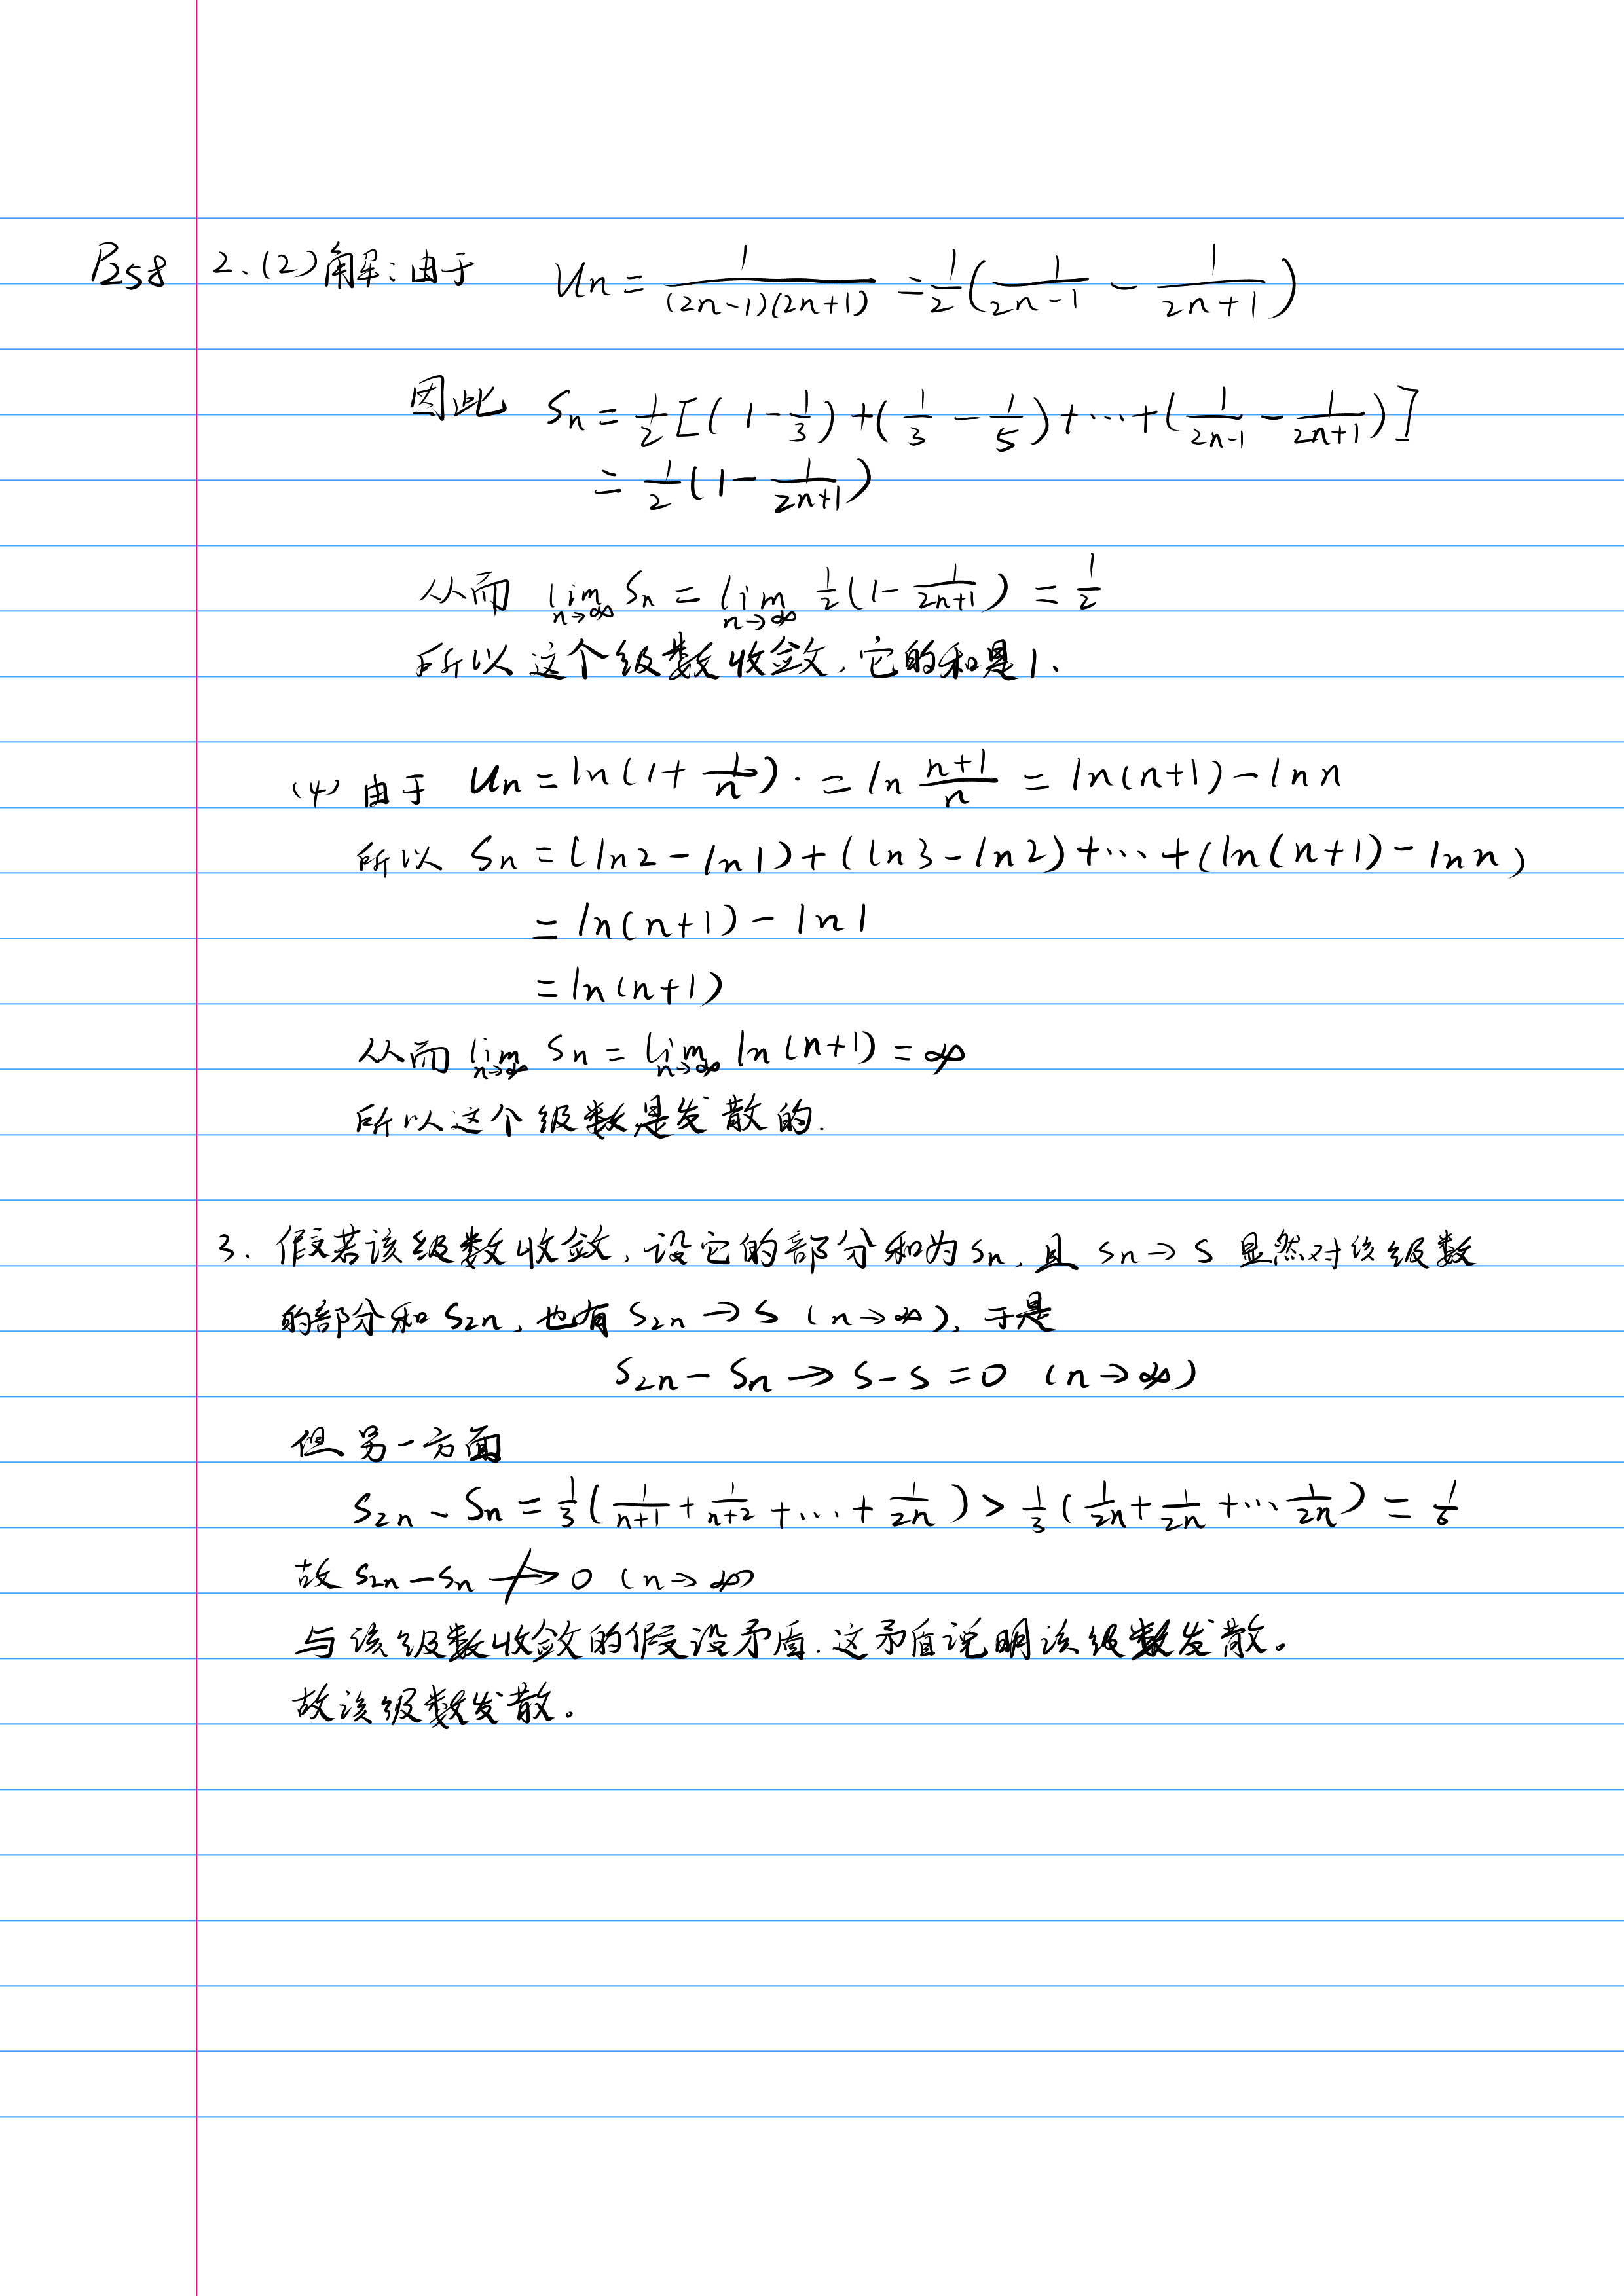 P258 2.(2)解:由于 Un = 1/((2n-1)(2n+1)) = 1/2(1/(2n-1) - 1/(2n+1))
因此 Sn = 1/2[(1-1/3)+(1/3-1/5)+…+(1/(2n-1)-1/(2n+1))]
= 1/2(1-1/(2n+1))
从而 lim n→∞ Sn = lim n→∞ 1/2(1-1/(2n+1)) = 1/2
所以这个级数收敛,它的和是1.
(4) 由于 Un = ln(1+1/n)· = ln (n+1)/n = ln(n+1)-ln n
所以 Sn = (ln2-ln1)+(ln3-ln2)+…+(ln(n+1)-ln n)
= ln(n+1)-ln1
= ln(n+1)
从而 lim n→∞ Sn = lim n→∞ ln(n+1) = ∞
所以这个级数是发散的.
3. 假若该级数收敛,设它的部分和为Sn,且 Sn→S.显然对该级数
的部分和S2n,也有S2n→S (n→∞),于是
S2n-Sn→S-S=0 (n→∞)
但另一方面
S2n-Sn = 1/3(1/(n+1)+1/(n+2)+…+1/2n) > 1/3(1/2n+1/2n+…1/2n) = 1/6
故S2n-Sn↛0 (n→∞)
与该级数收敛的假设矛盾.这矛盾说明该级数发散。
故该级数发散。